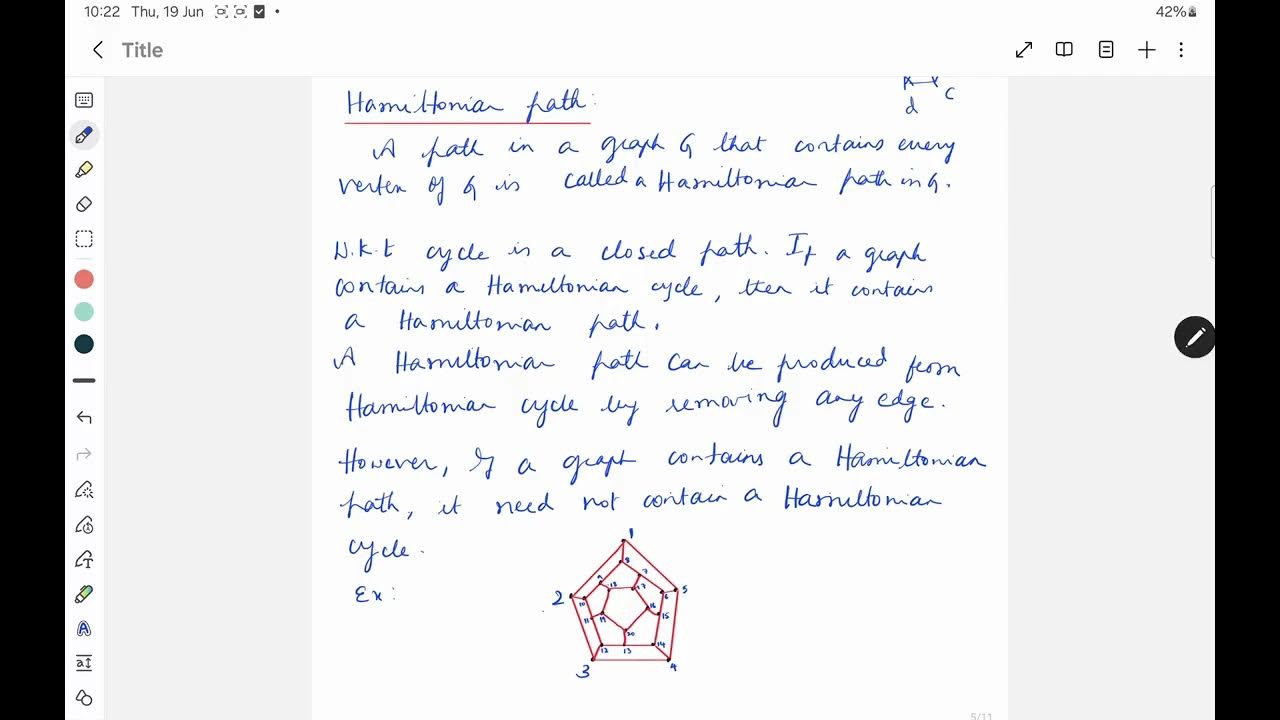 10:22 Thu, 19 Jun
42%
Title
d c
Hamiltonian path:
A path in a graph G that contains every
vertex of G is called a Hamiltonian path in G.
W.k.t cycle is a closed path. If a graph
contains a Hamiltonian cycle, then it contains
a Hamiltonian path.
A Hamiltonian path can be produced from
Hamiltonian cycle by removing any edge.
However, if a graph contains a Hamiltonian
path, it need not contain a Hamiltonian
cycle.
Ex:
1
8
9 7
18 17
2 10 6 5
16
11 19 15
20
12 13 14
3 4
5/11